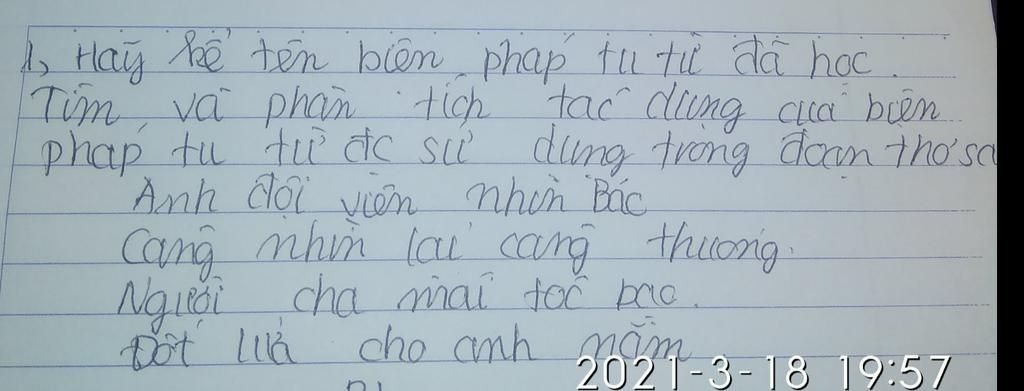 1, Hãy kể tên biện pháp tu từ đã học.
Tìm và phân tích tác dụng của biện
pháp tu từ đc sử dụng trong đoạn thơ sa
Anh đội viên nhìn Bác
Càng nhìn lại càng thương.
Người cha mái tóc bạc.
Đốt lửa cho anh nằm
2021-3-18 19:57